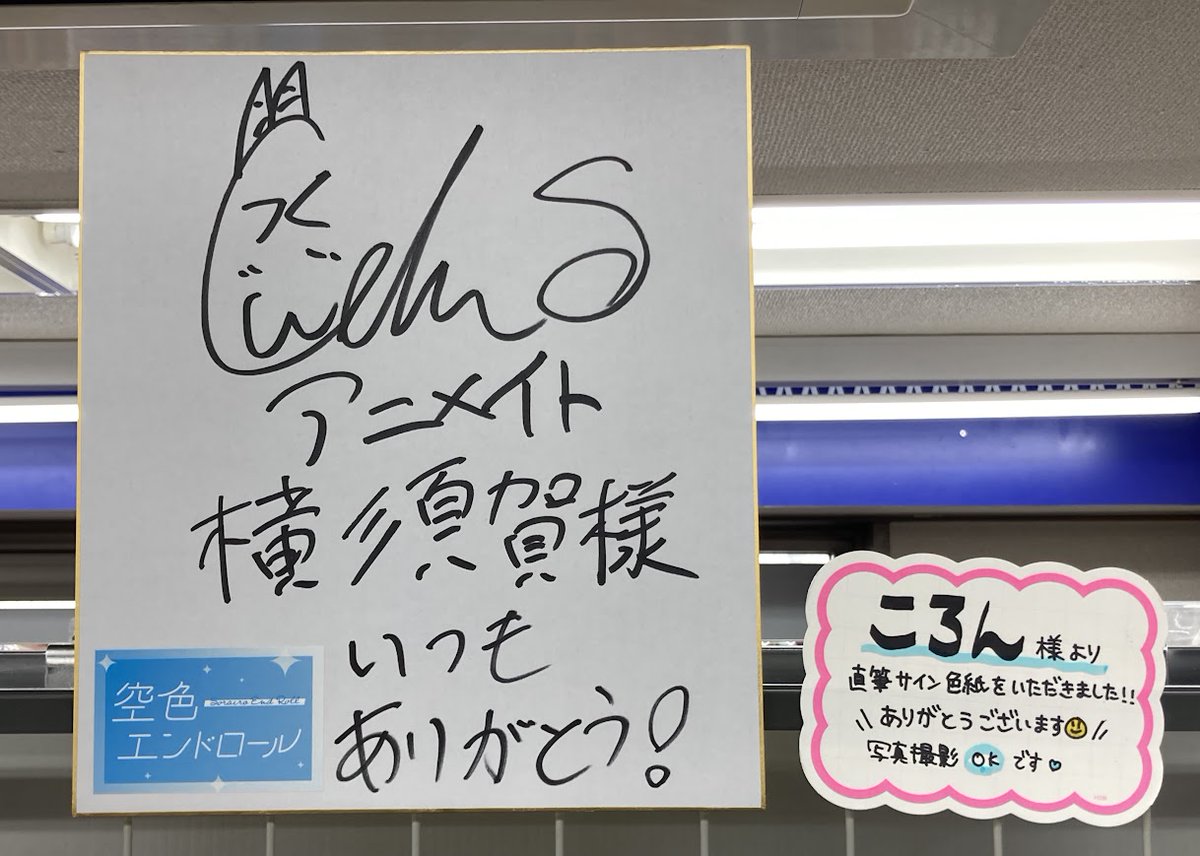 アニメイト
横須賀様
いつも
ありがとう!
空色
Sorairo End Roll
エンドロール
ころん様より
直筆サイン色紙をいただきました!!
\\ありがとうございます//
写真撮影OKです♡